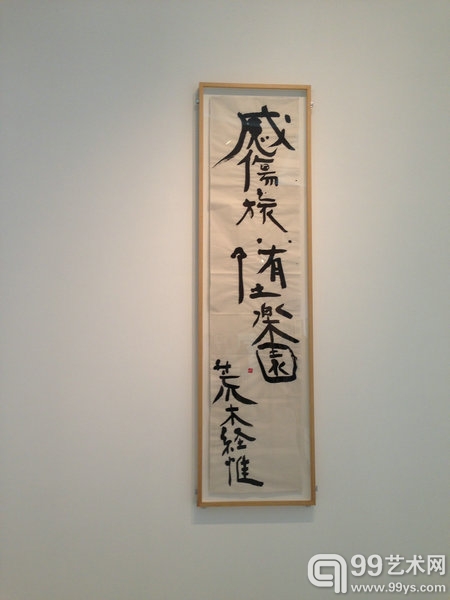 感傷旅・堕楽園
荒木経惟
99艺术网
www.99ys.com